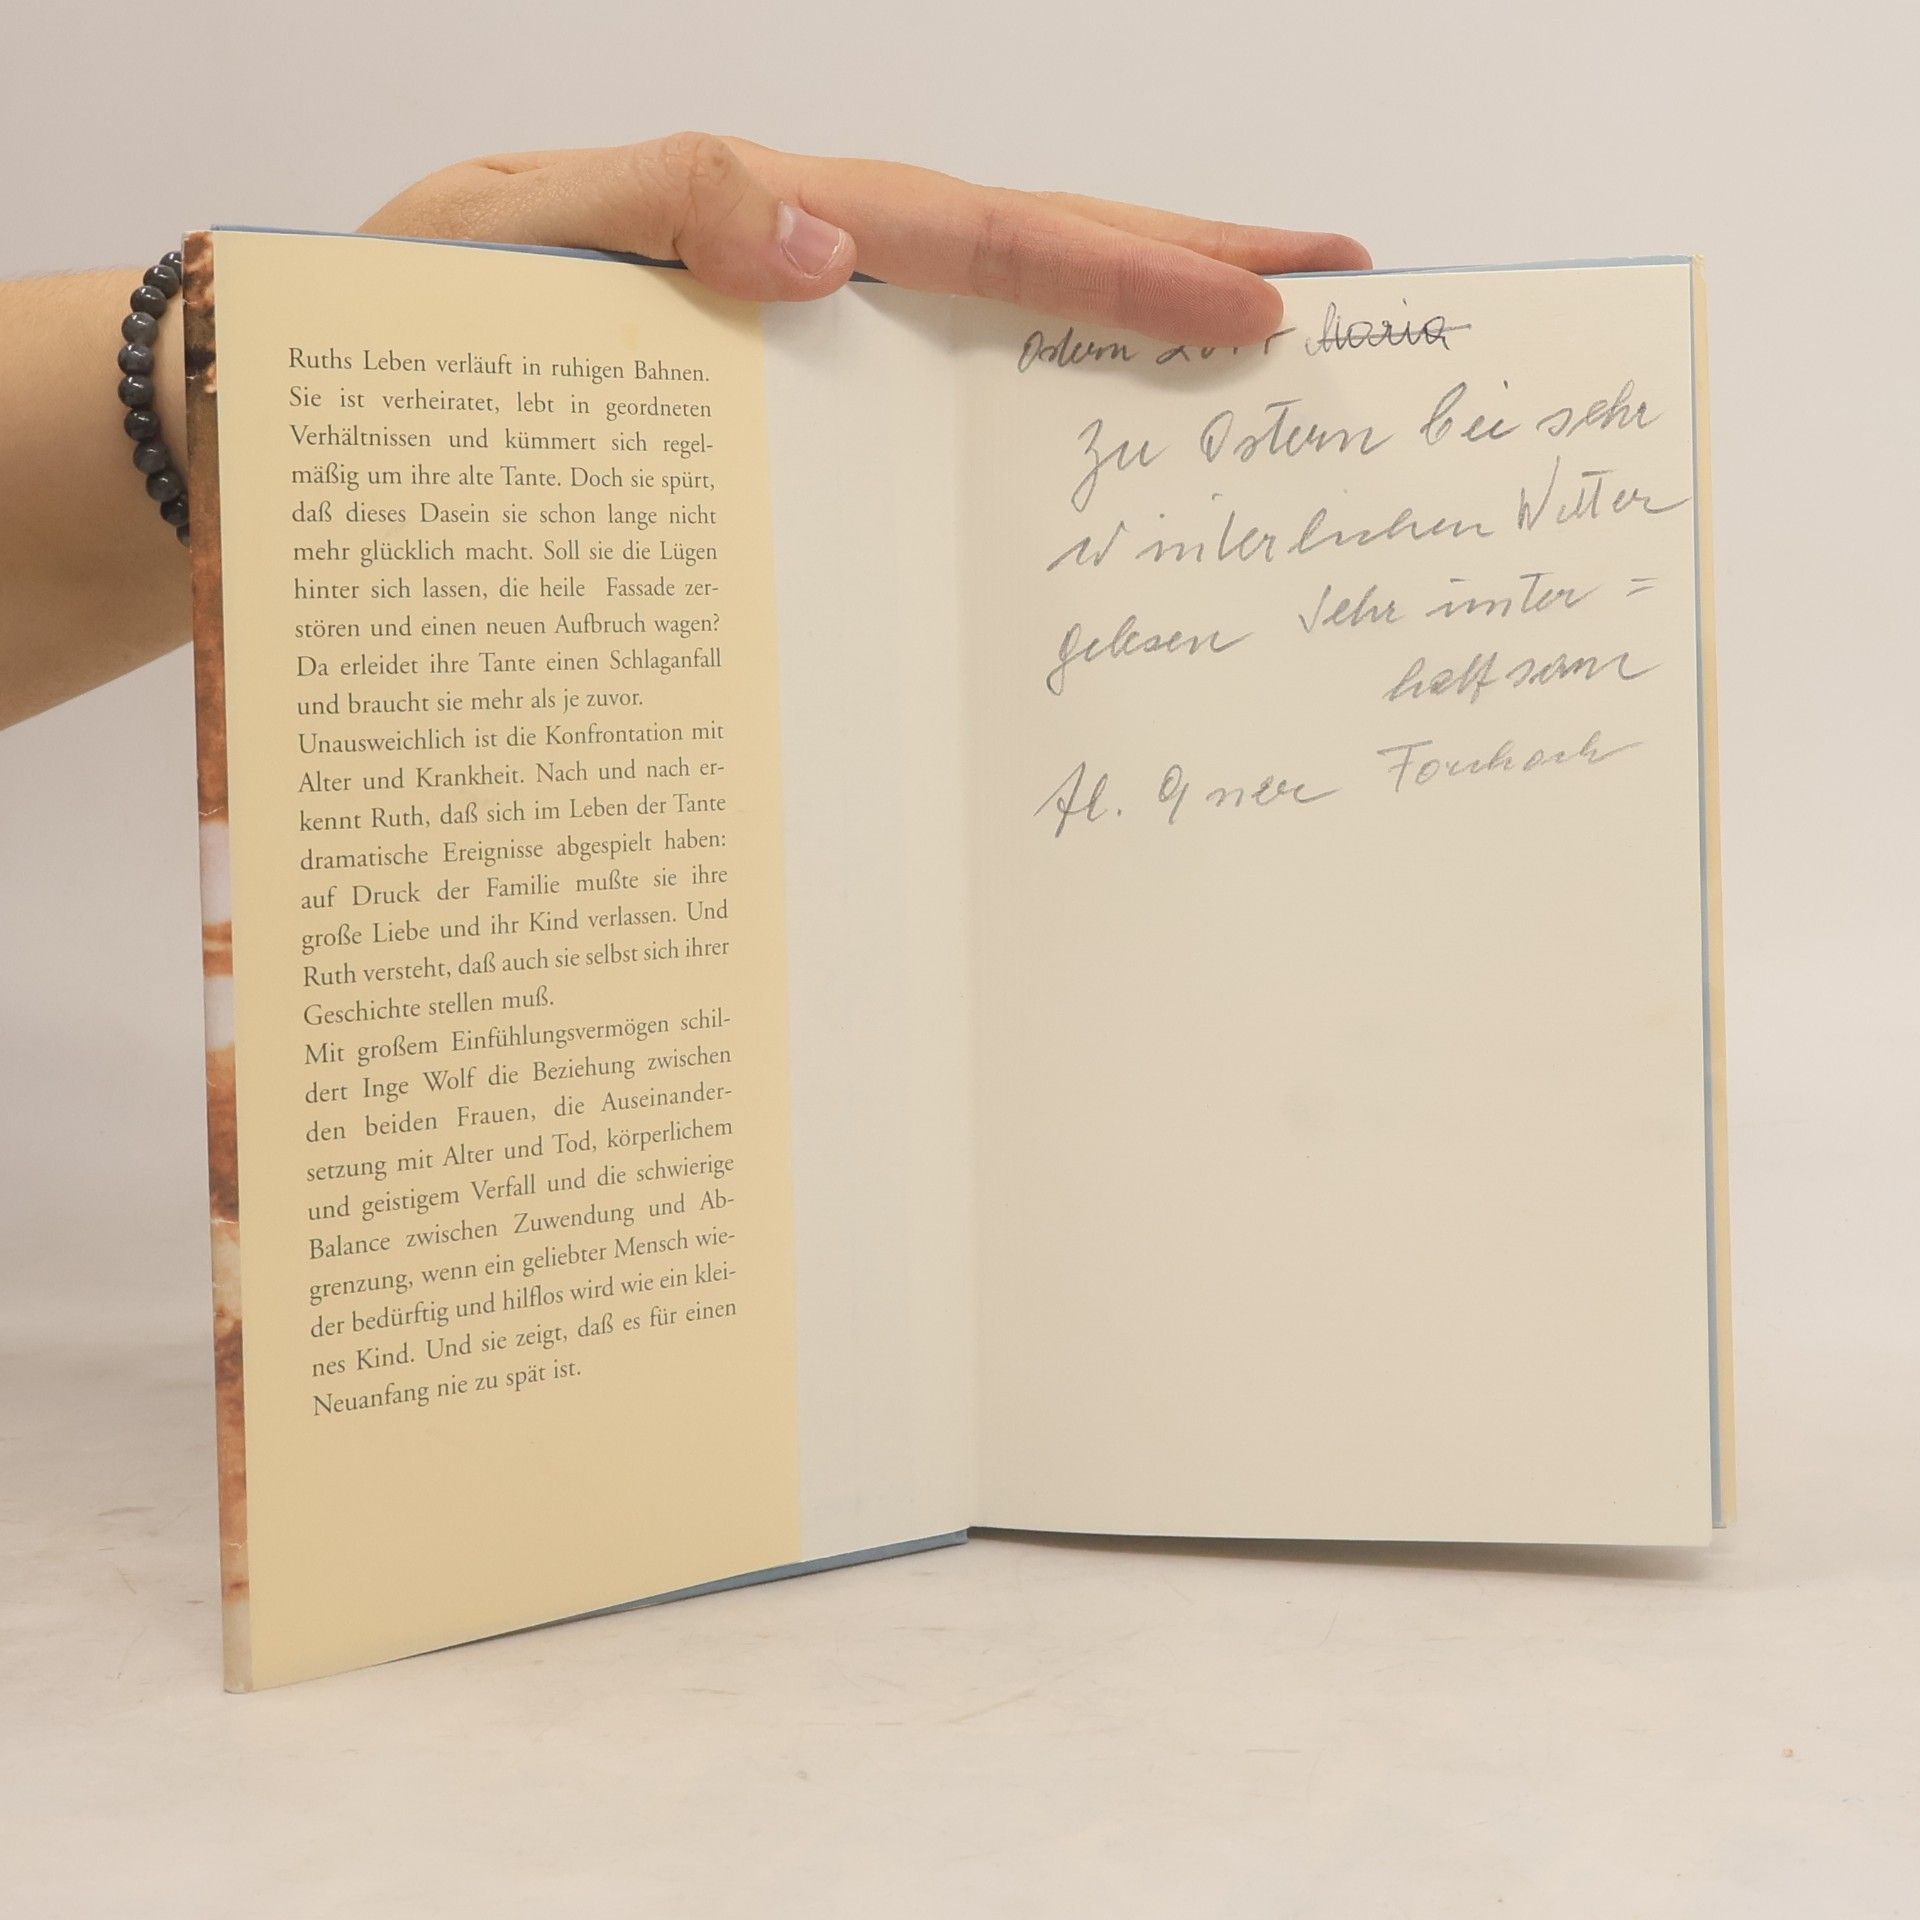 Ruths Leben verläuft in ruhigen Bahnen.
Sie ist verheiratet, lebt in geordneten
Verhältnissen und kümmert sich regel-
mäßig um ihre alte Tante. Doch sie spürt,
daß dieses Dasein sie schon lange nicht
mehr glücklich macht. Soll sie die Lügen
hinter sich lassen, die heile Fassade zer-
stören und einen neuen Aufbruch wagen?
Da erleidet ihre Tante einen Schlaganfall
und braucht sie mehr als je zuvor.
Unausweichlich ist die Konfrontation mit
Alter und Krankheit. Nach und nach er-
kennt Ruth, daß sich im Leben der Tante
dramatische Ereignisse abgespielt haben:
auf Druck der Familie mußte sie ihre
große Liebe und ihr Kind verlassen. Und
Ruth versteht, daß auch sie selbst sich ihrer
Geschichte stellen muß.
Mit großem Einfühlungsvermögen schil-
dert Inge Wolf die Beziehung zwischen
den beiden Frauen, die Auseinander-
setzung mit Alter und Tod, körperlichem
und geistigem Verfall und die schwierige
Balance zwischen Zuwendung und Ab-
grenzung, wenn ein geliebter Mensch wie-
der bedürftig und hilflos wird wie ein klei-
nes Kind. Und sie zeigt, daß es für einen
Neuanfang nie zu spät ist.
Ostern Maria
Zu Ostern bei sehr
winterlichen Wetter
gelesen Sehr unter =
haltsam